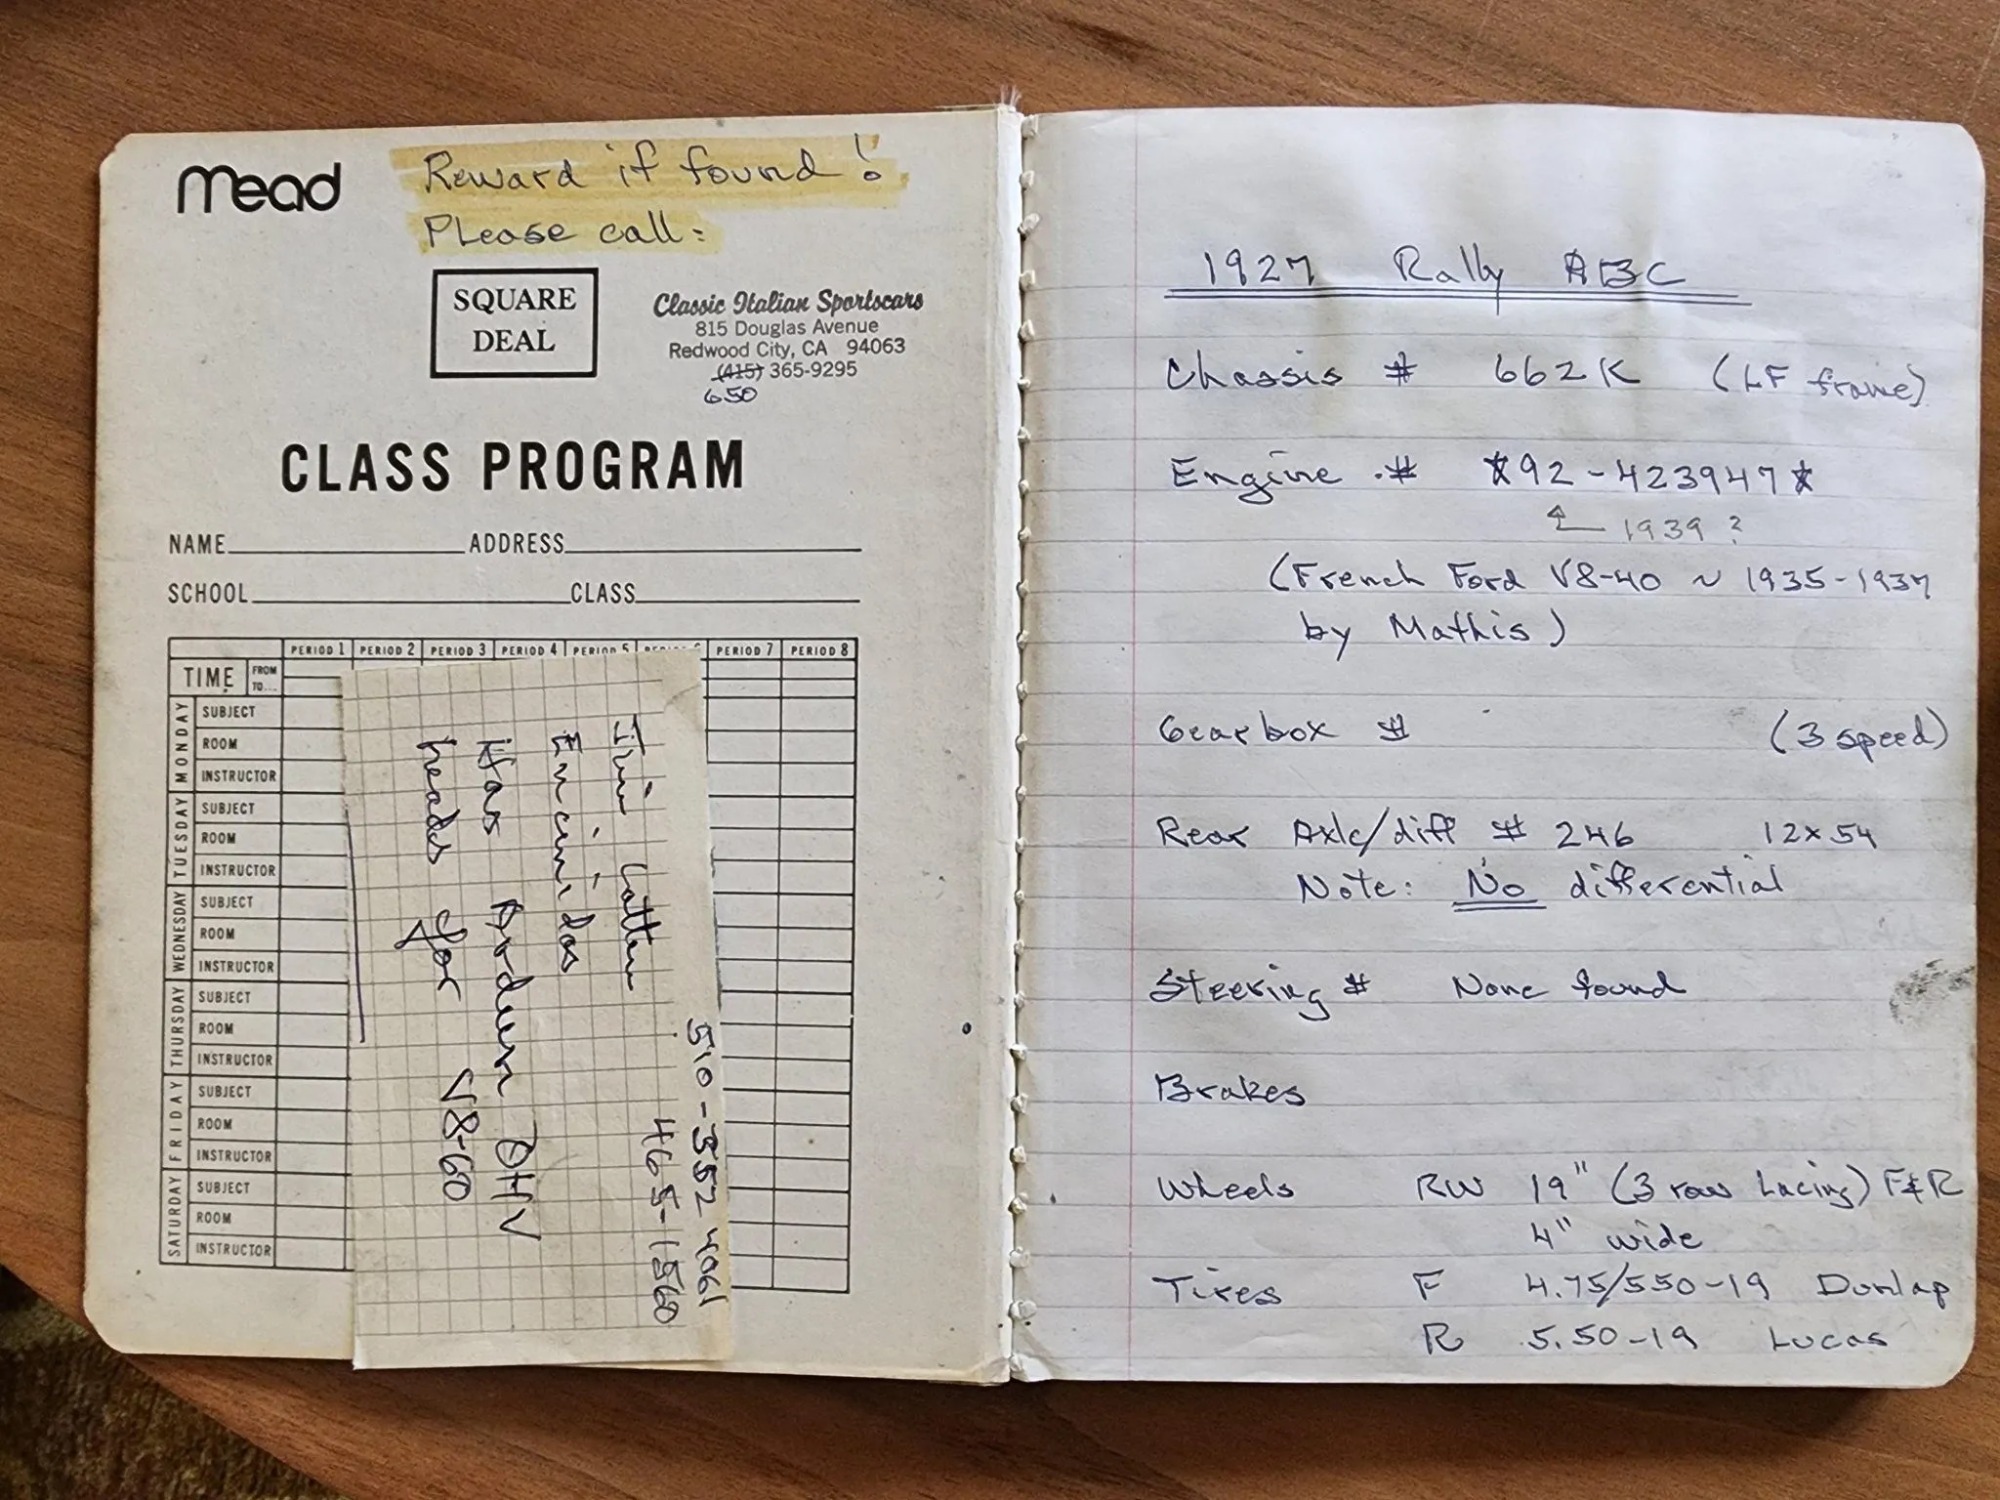 mead
Reward if found!
Please call:
SQUARE
DEAL
Classic Italian Sportscars
815 Douglas Avenue
Redwood City, CA 94063
(415) 365-9295
650
CLASS PROGRAM
NAME ADDRESS
SCHOOL CLASS
PERIOD 1 PERIOD 2 PERIOD 3 PERIOD 4 PERIOD 5 PERIOD 7 PERIOD 8
TIME FROM
TO...
MONDAY
SUBJECT
ROOM
INSTRUCTOR
TUESDAY
SUBJECT
ROOM
INSTRUCTOR
WEDNESDAY
SUBJECT
ROOM
INSTRUCTOR
THURSDAY
SUBJECT
ROOM
INSTRUCTOR
FRIDAY
SUBJECT
ROOM
INSTRUCTOR
SATURDAY
SUBJECT
ROOM
INSTRUCTOR
510-552 4061
465-1560
Jim
Has Ardun OHV
heads for V8-60
1927 Rally ABC
Chassis # 662K (LF frame)
Engine # *92-423947*
1939?
(French Ford V8-40 ~ 1935-1937
by Mathis)
Gearbox # (3 speed)
Rear Axle/diff # 246 12x54
Note: No differential
Steering # None found
Brakes
Wheels RW 19" (3 row Lacing) F&R
4" wide
Tires F 4.75/550-19 Dunlap
R 5.50-19 Lucas